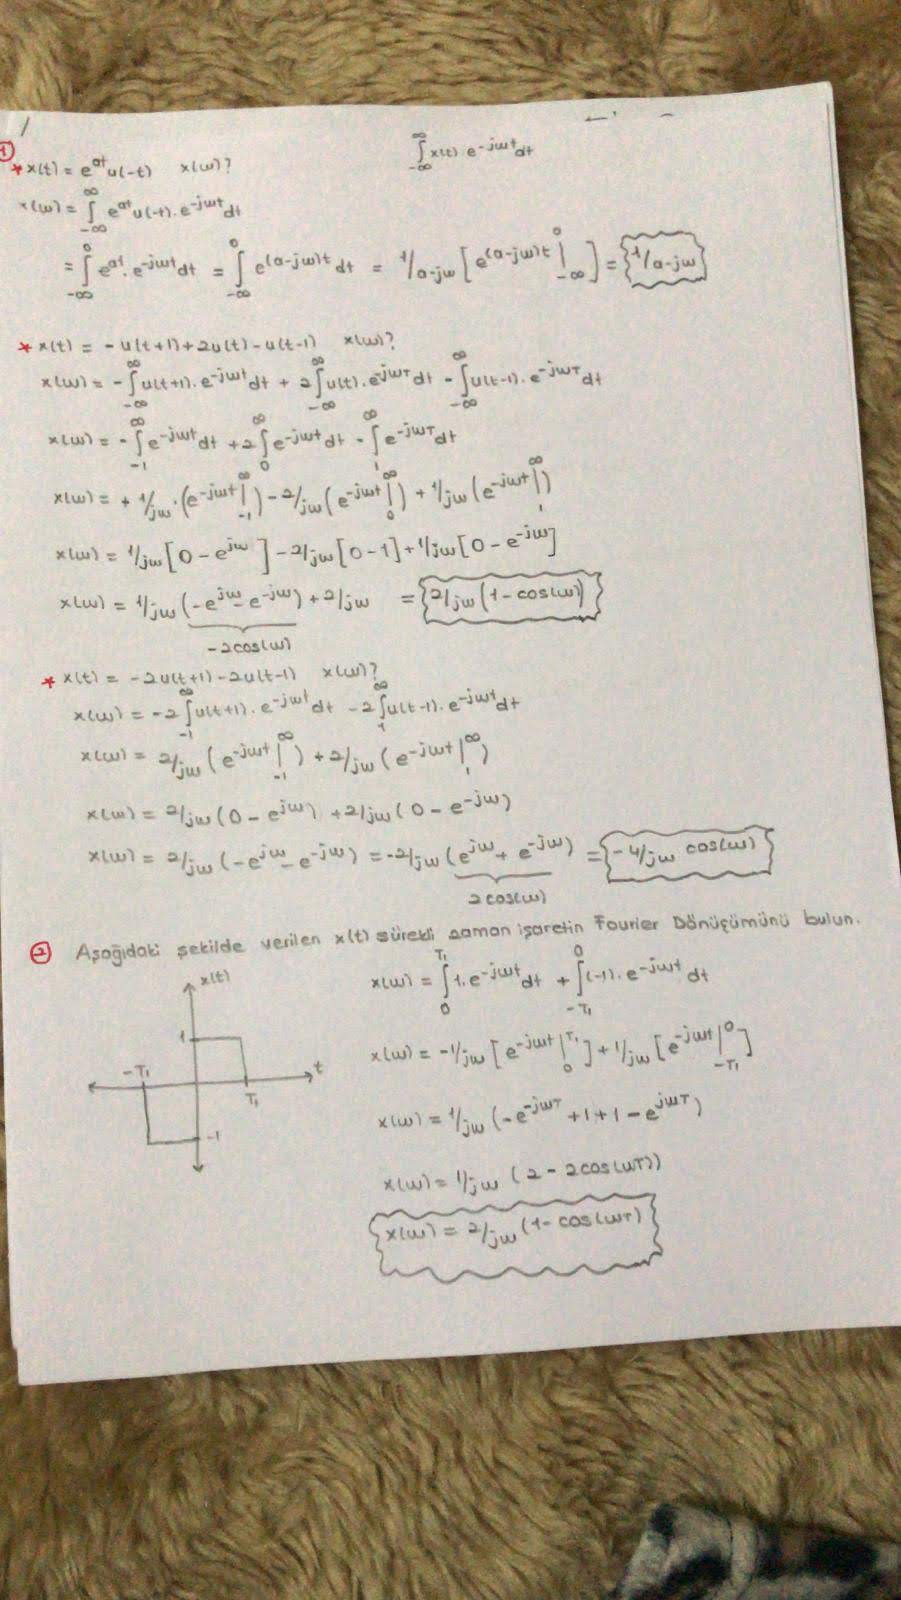 1
∫_{-∞}^{∞} x(t) e^{-jωt} dt
* x(t) = e^{at} u(-t) x(ω)?
x(ω) = ∫_{-∞}^{∞} e^{at} u(-t) . e^{-jωt} dt
= ∫_{-∞}^{0} e^{at} . e^{-jωt} dt = ∫_{-∞}^{0} e^{(a-jω)t} dt = 1/a-jω [e^{(a-jω)t} |_{-∞}^{0}] = 1/a-jω
* x(t) = -u(t+1)+2u(t)-u(t-1) x(ω)?
x(ω) = -∫_{-∞}^{∞} u(t+1) . e^{-jωt} dt + 2∫_{-∞}^{∞} u(t) . e^{-jωT} dt - ∫_{-∞}^{∞} u(t-1) . e^{-jωT} dt
x(ω) = -∫_{-1}^{∞} e^{-jωt} dt + 2∫_{0}^{∞} e^{-jωt} dt - ∫_{1}^{∞} e^{-jωT} dt
x(ω) = + 1/jω . (e^{-jωt} |_{-1}^{∞}) - 2/jω (e^{-jωt} |_{0}^{∞}) + 1/jω (e^{-jωt} |_{1}^{∞})
x(ω) = 1/jω [0 - e^{jω}] - 2/jω [0-1] + 1/jω [0 - e^{-jω}]
x(ω) = 1/jω (-e^{jω} - e^{-jω}) + 2/jω = 2/jω (1 - cos(ω))
-2cos(ω)
* x(t) = -2u(t+1) - 2u(t-1) x(ω)?
x(ω) = -2∫_{-1}^{∞} u(t+1) . e^{-jωt} dt - 2∫_{1}^{∞} u(t-1) . e^{-jωt} dt
x(ω) = 2/jω (e^{-jωt} |_{-1}^{∞}) + 2/jω (e^{-jωt} |_{1}^{∞})
x(ω) = 2/jω (0 - e^{jω}) + 2/jω (0 - e^{-jω})
x(ω) = 2/jω (-e^{jω} - e^{-jω}) = -2/jω (e^{jω} + e^{-jω}) = -4/jω cos(ω)
2cos(ω)
2 Aşağıdaki şekilde verilen x(t) sürekli zaman işaretin Fourier Dönüşümünü bulun.
x(t)
1
-T₁
t
T₁
-1
x(ω) = ∫_{0}^{T₁} 1. e^{-jωt} dt + ∫_{-T₁}^{0} (-1) . e^{-jωt} dt
x(ω) = -1/jω [e^{-jωt} |_{0}^{T₁}] + 1/jω [e^{-jωt} |_{-T₁}^{0}]
x(ω) = 1/jω (-e^{-jωT} + 1 + 1 - e^{jωT})
x(ω) = 1/jω (2 - 2cos(ωT))
x(ω) = 2/jω (1 - cos(ωT)